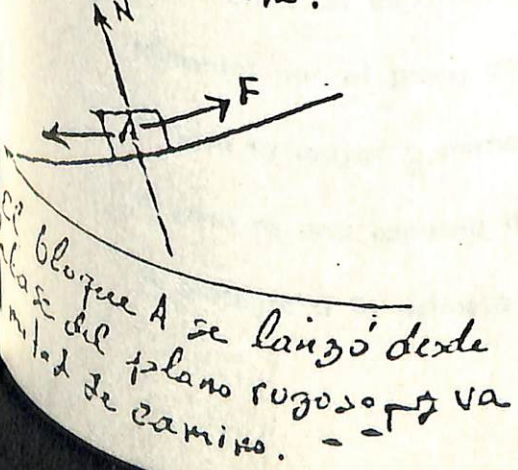 N
F
A
El bloque A se lanzó desde
base del plano rugoso y va
mitad de camino.